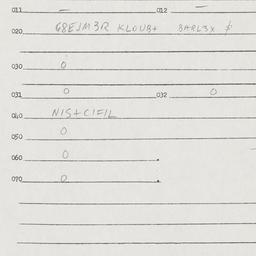 011 — 012 —
020 G8EJM3R KLOUB+ 8ARL3X $
030 0
031 0 032 0
040 NIS+CIFIL
050 0
060 0
070 0